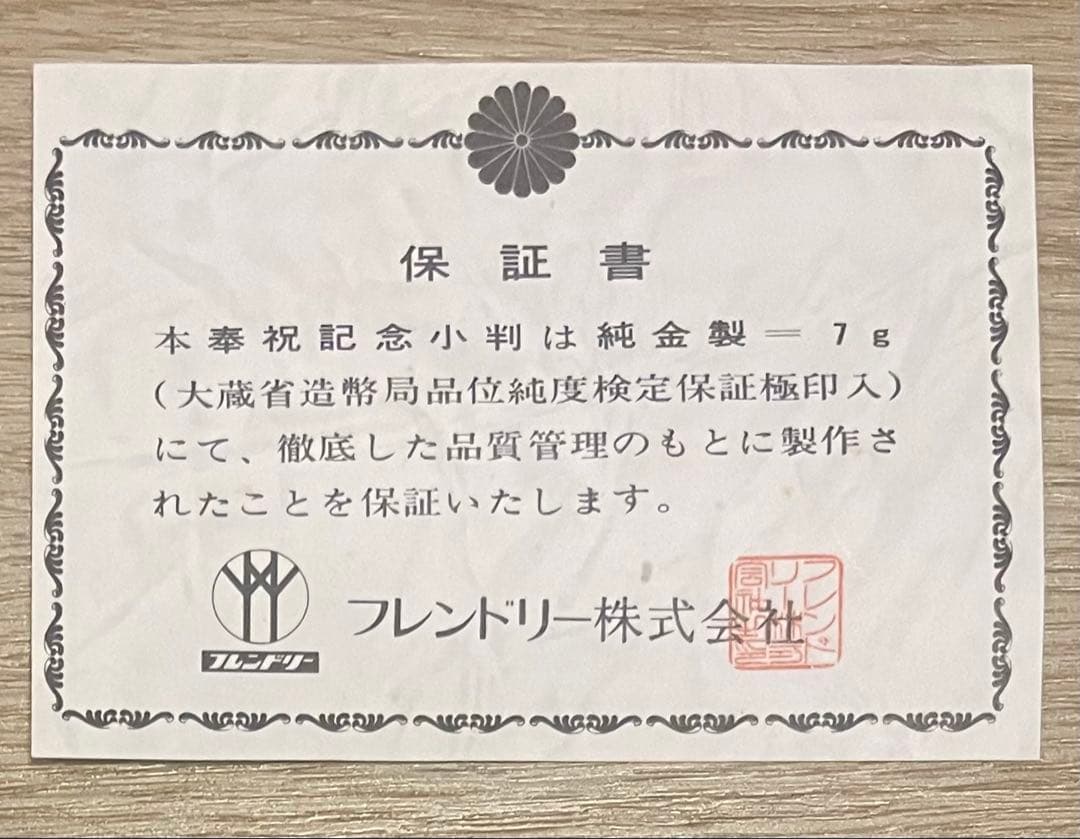 保証書
本奉祝記念小判は純金製＝7g
(大蔵省造幣局品位純度検定保証極印入)
にて、徹底した品質管理のもとに製作さ
れたことを保証いたします。
フレンドリー株式会社
フレンドリー